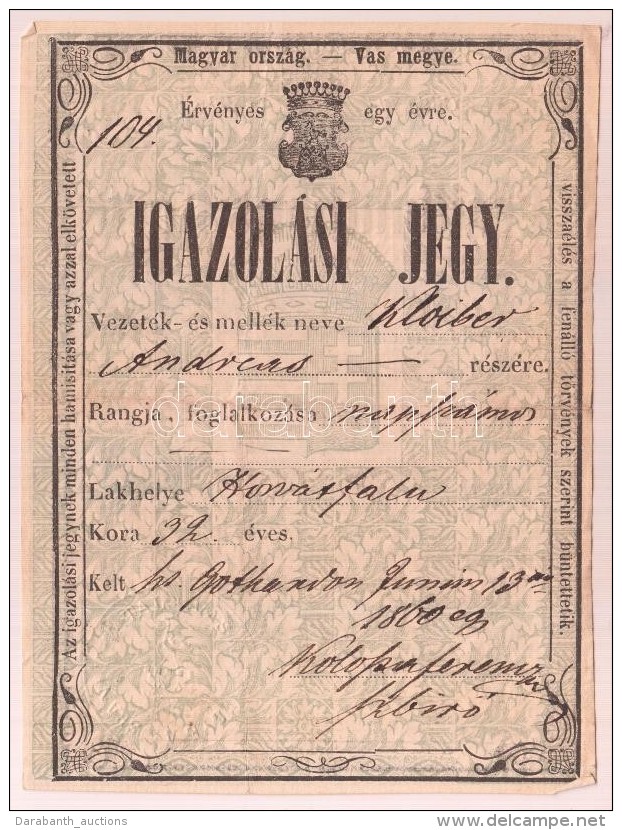 Magyar ország. — Vas megye.
Érvényes egy évre.
104.
IGAZOLÁSI JEGY.
Vezeték- és mellék neve Kloiber
Andreas — részére.
Rangja, foglalkozása napszámos
Lakhelye Horvátfalu
Kora 32 éves.
Kelt sz. Gothardon Junius 13án
1860
szbiró
Az igazolási jegynek minden hamisitása vagy azzal elkövetett
visszaélés a fenálló törvények szerint büntettetik.
darabanth
Darabanth_auctions
delcampe.net